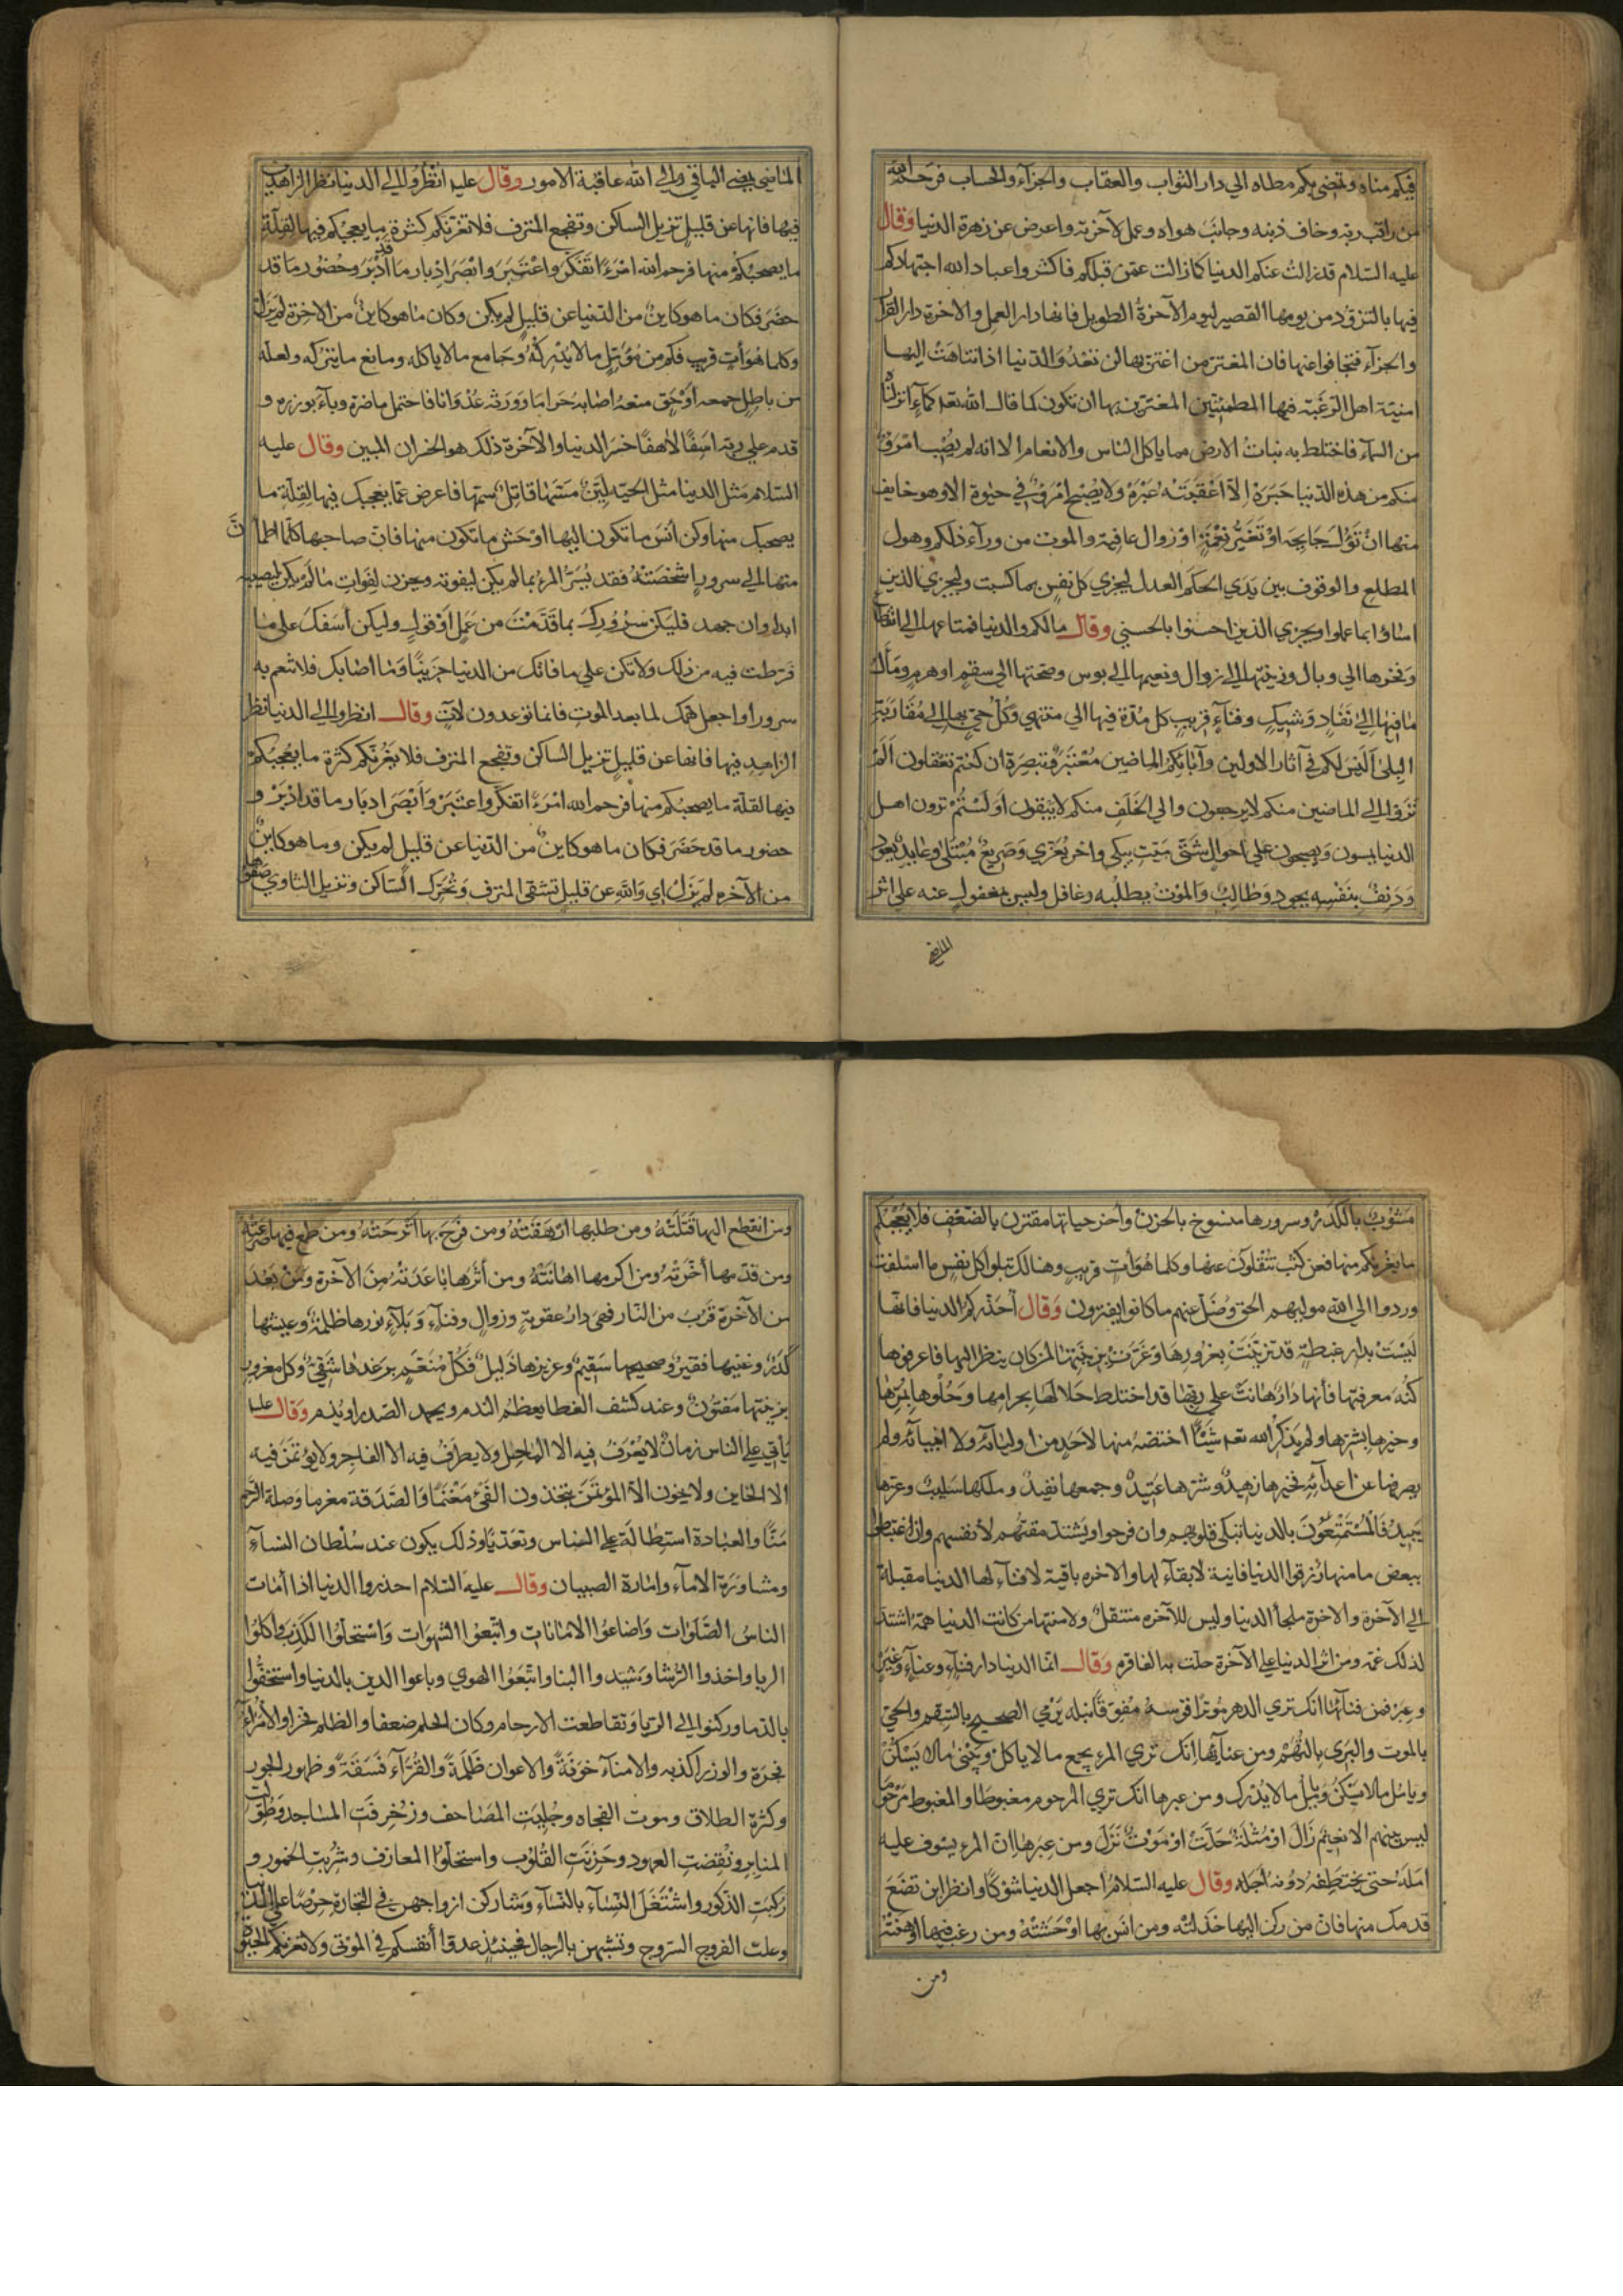 فيكم مناه وتمضي بكم مطاه الي دار الثواب والعقاب والجزآء والحساب فرحم الله
من راقب ربه وخاف ذنبه وجانَبَ هواه وعمل لآخرته واعرض عن زهرة الدنيا وَقال
عليه السّلام قد زالتْ عنكم الدنيا كما زالت عمّن قبلكم فاكثروا عباد الله اجتهادكم
فيها بالتزوّد من يومها القصير ليوم الآخرةُ الطويل فانها دار العمل والاخرة دار القرار
والجزآء فتجافوا عنها فان المغترّ من اغترّ بها لن تعْدُوَ الدّنيا اذا تناهَتْ اليها
امنيّة اهل الرّغبَة فيها المطمئنين المغترّين بها ان تكون كما قال الله تعه كمآءٍ انزلنٰاه
من السّمآء فاختلط به نباتُ الارض مما ياكل الناس والانعام الا انه لم يُصِب امْرَؤٌ
منكم من هذه الدّنيا حَبَرَةً اِلّا اعْقَبَتْهُ عَبْرَةً ولا يُصْبِح امْرَؤٌ في حيٰوة الّا وهو خايف
منها انْ تَؤُلَ جَايحَة اوْ تَغَيُّرَ نِعْمَةٍ اوْ زوال عافية والموت من ورآء ذلكم وهول
المطلع والوقوف بين يَدَي الحكَم العدل ليجزي كلّ نفسٍ بما كسبت وليجزي الذين
اسٰاؤا بما عملوا ويجزي الذين احسنوا بالحسني وقال ما لكم والدنيا فمتاعها الي انقطاع
وَفخرها الي وبال وزينتها الي زوال ونعيمها الي بوس وصحّتها الي سقم او هرم ومَآلُ
مٰا فيها اِلي نَفٰادٍ وَشِيكٍ وفنآءٍ قريبٍ كل مُدّة فيها الي منتهي وَكُلّ حيٍّ بها اِلي مُقٰارَبَة
البِلیٰ اَلَيْسَ لكم في آثار الاولين وآبٰائكمُ الماضين مُعْتَبَرٌ وَتبصِرَة ان كنتم تعقلون اَلَمْ
تَرَوْا الي الماضين منكم لا يرجعون والي الخَلَفِ منكم لا يبقون اَوَلَسْتُمْ ترون اهل
الدنيا يمسون وَيصبحون علي احوالٍ شَتّي مَيّت يبكي واخر يُعَزّي وَصَرِيعٌ مُبْتَلي وعٰايدٌ يَعُودُ
وَدَنِفٌ بنَفْسِه يجود وَطٰالبٌ وَالموت يطلبه وغافل وليس بمغفولٍ عنه علي اثر
الماضي
الماضي يمضي الباقي والي الله عاقبة الامور وقال عليه انْظُرُوا الي الدنيا نظر الزاهدين
فيها فانها عن قليلٍ تزيل السّاكن وتفجع المترف فلا تغرّنّكم كثرة ما يعجبكم فيها لقلّة
ما يصحبكم منها فرحم الله امْرَءً اتَفَكّرَ واعْتَبَرَ وابْصَرَ ادْبار ما قد اَدْبَرَ وحُضُور ما قد
حضَر فكان ما هو كاينٌ من الدّنيا عن قليلٍ لم يكن وكان ما هو كاينٌ من الاخرة لم يزل
وكلما هُوَ آتٍ قريب فكم من مُؤَمِّلٍ ما لا يُدْرِكُهُ وجامع ما لا ياكله ومانع ما يتركه ولعلّه
من باطِلٍ جمعه اَوْحَقٍّ منعه اصٰابه حَرامًا وَوَرثه عُدْوانًا فاحتمل ماضرّه وبآءَ بوزره و
قدم علي ربّه اسِفًا لٰاهفًا خسِرَ الدنيا والآخرة ذلك هو الخسران المبين وقال عليه
السّلام مَثل الدنيا مثل الحيّة ليّنٌ مَسّهٰا قاتلٌ سمّها فاعرض عمّا يعجبك فيها لقِلّة ما
يصحبك منها وكن آنسَ ما تكون اليها اوْحَشَ ما تكون منها فانّ صاحبها كلّما اطمأنَّ
منها الي سرورٍ اشخصَتْهُ فقد يُسَرُّ المرءُ بما لم يكن ليفوته ويحزن لِفَواتِ مٰا لمْ يكن ليصيبه
ابدا وان جهد فليكن سُرُورُكَ بما قَدَّمْتَ من عَمَلٍ اَوْقولٍ وليكن اَسَفكَ علي مٰا
فَرّطت فيه من ذلك ولا تكن علي ما فاتك من الدنيا حَزِينًا وَمٰا اصٰابك فلا تنعم به
سرورًا واجعل همّك لما بعد الموت فانما توعدون لآتٍ وقال انظروا الي الدنيا نظر
الزاهِدِ فيها فانها عن قليلٍ تزيل السّاكن وتفجع المترف فلا يَغُرّنكم كثرة ما يُعْجبُكم
فيها لقلّة ما يصحبكم منها فرحم الله امْرَءً اتفكّر واعتبَرَ وَابْصَرَ ادبار ما قد ادبَرَ و
حضور ما قد حَضَرَ فكان ما هو كاينٌ من الدّنيا عن قليلٍ لم يكن وما هو كاينٌ
من الآخره لم يَزَلْ اي وَاللّهِ عن قليل تشقي المترف وَتُحَرّك السّاكن وتزيل الثاوي صَفْوُها
مَشُوبٌ بالكدَر وسرورها منسوخ بالحزن وآخر حياتها مقترن بالضّعْفِ فلا يُعْجبكم
ما يغرّكم منها فعن كثب تُنْقلون عنها وكلما هُوَ آتٍ قريب وهنالك تبلوا كلّ نفسٍ ما اسْلفت
وردوا الي الله موليهم الحق وَضَلّ عنهم ما كانوا يفترون وَقال اُحَذّركم الدنيا فانّها
لَيْسَتْ بدٰار غبطةٍ قد تزيّنَتْ بغُرُورِهَا وَغَرَّتْ بزِينَتِهٰا لمن كان ينظر اليها فاعرفوها
كُنْهَ معرفتها فانّها دَارٌ هٰانَتْ علي ربّهٰا قد اختلط حَلالهَا بحرامها وَحُلْوها بمُرّهٰا
وخيرها بشرّها ولم يذكُرِ الله تعه شَيْئًا اختصّهُ منها لِاَحَدٍ من اوليآئه ولا انبيآئه ولم
يصرفها عن اعدآئِه فخيرها زهيدٌ وشرّها عَتِيدٌ وجمعها ينفدُ وملكها يسلبُ وعزّها
يَبِيدُ فَالْمُتَمَتّعُونَ بالدنيا تبكي قلوبهم وان فرحوا ويَشْتدّ مقتهُم لِاَنفسِهِم وان اغتبطوا
ببعض ما منها رُزقوا الدنيا فانية لا بقآءَ لها والاخره باقية لا فنآءَ لها الدنيا مقبلة
الي الآخرة والاخرة ملجأ الدنيا وليس للآخره منتقلٌ ولا منتهي من كانت الدنيا همّه اشتدّ
لذلك غمّه ومن اثر الدنيا علي الآخرة حلّت به الفاقره وَقال انّما الدنيا دار فنآءٍ وعنآءٍ وَغِيَرٍ
وعِبَرٍ فمن فنآئها انك تري الدهر مُوتِرًا قوسهُ مُفوّقًا نبله يَرْمي الصحيح بالسّقم والحيّ
بالموت والبَرِي بالتُّهَمْ ومن عنآئها انك تَرَي المرء يجمع ما لا ياكل وَيَبْني مالا يَسْكُنُ
ويامُل مالا يُدْرك ومن عبرها انك تري المرحوم مغبوطًا والمغبوط مَرْحومًا
ليس بينهم الا نعِيمٌ زَالَ اوْ مُثْلَةٌ حَلّتْ اوْ مَوْتٌ نَزَلَ ومن عِبَرِهٰا انّ المرء يشرف عليه
امَلَه حتي يختطفه دُونه اَجَله وقال عليه السّلامُ اجعل الدنيا شَوْكًا وانظر اين تضَعَ
قدمك منها فانّ من ركن اليها خَذَلَتْه ومن انَس بها اوْحَشَتْهُ ومن رغب فيها اوْهَنَتْهُ
ومن
ومن انقطع اليها قَتَلَتْهُ ومن طلبها ارْهَقَتْهُ ومن فَرِحَ بها اَتْرحَتْهُ ومن طمع فيها صَرَعَتْهُ
ومن قدّمها اَخّرَتْه ومن اكرمها اهٰانَتْهُ ومن آثَرَهٰا بٰاعَدَتْهُ مِنَ الآخرة وَمَنْ بَعُدَ
من الآخرة قَرُبَ من النّار فهيَ دارُ عقوبةٍ وزوالٍ وفنآءٍ وَبَلآءٍ نورها ظلمةٌ وعيشها
كَدَرٌ وغنيّها فقيرٌ وصحيحها سَقِيمٌ وعزيزها ذَليلٌ فَكُلّ مُنَعَّمٍ برَغدِهٰا شَقِيٌّ وكل مغرورٍ
بزينتها مَفتُونٌ وعند كشف الغطا يعظُم الندم ويحمد الصّدر او يُذم وَقال عليه
يَأتي علي الناس زمانٌ لا يُعْرَفُ فيه الا المٰاحِل ولا يظرَفُ فيه الا الفاجر ولا يؤتمَنُ فيه
الا الخاين ولا يخون الّا المؤتمَنَ يتخذون الفَيْءَ مَغْنَمًا وَالصّدَقة مغرما وَصِلة الرّحم
مَنًّا والعبادة استِطٰالَةً علي الناس وتعدّيًا وذلك يكون عند سُلْطان النسآءَ
ومشاورَة الامآءِ وامٰارة الصبيان وَقال عليه السّلام احذروا الدنيا اذا اَمٰاتَ
الناسُ الصّلَوٰات وَاضٰاعُوا الامٰانٰاتِ واتّبعُوا الشهوٰات وَاسْتحلّوُا الكذِبَ وَاكلوا
الربا واخذوا الرّشا وَشيّدوا البنا واتّبَعُوا الهوي وباعوا الدين بالدنيا واستخفّوا
بالدّما وركنوا الي الرّيا وتقاطعت الارحام وكان الحلم ضعفا والظلم فخرا والاُمَرٰآء
فجرَة والوزرا كذبه والامنآء خوَنَةً والاعوان ظَلَمةً والقُرّآء فَسَقَةً وظهور الجور
وكثرة الطلاق وموت الفجاه وحُلِيَتِ المَصَاحف وزُخْرِفَتِ المسٰاجد وَطوّلت
المنابر ونُقِضَتِ العهود وخَرِبَتِ القُلوُب واستحلّوا المعازف وشُربَت الخمور و
رُكبَت الذّكور واشْتَغَلَ النّسٰآء بالنّسٰآءِ وَشاركن ازواجهن في التجارة حِرْصًا علي الدنيا
وعلت الفروج السّروج وتشبّهن بالرّجال فحينئذٍ عدّوا اَنفسكم في الموتي ولا تغرّنكم الحيٰوة